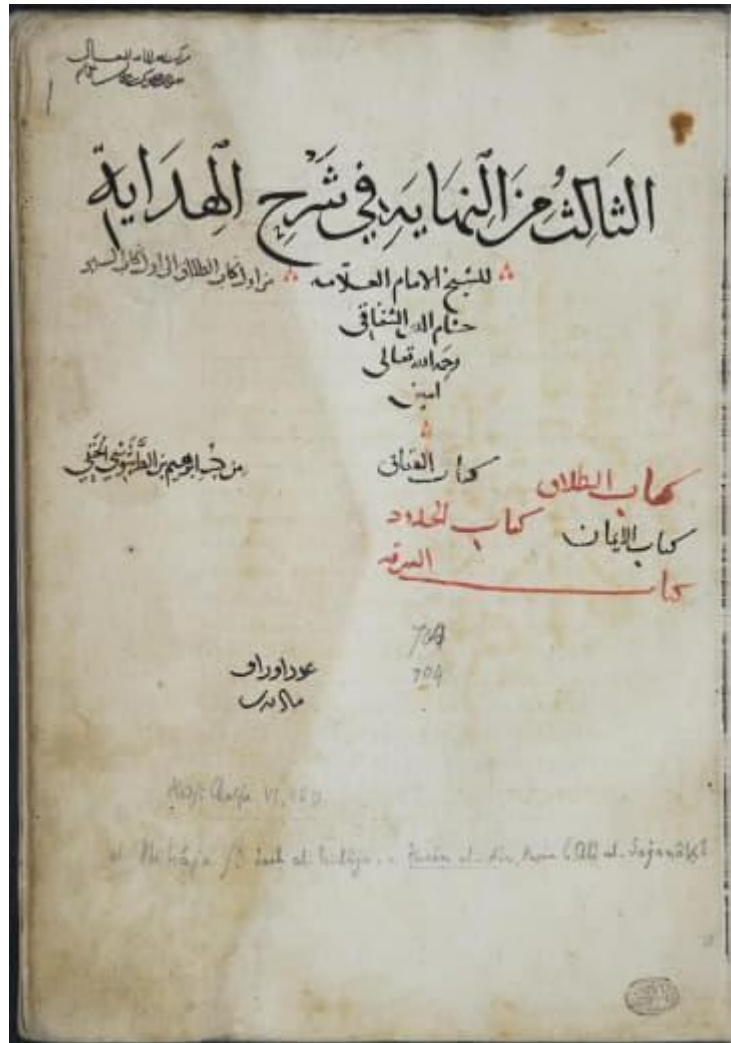 الثالث مِنَ النهايه في شَرْحِ الهِدَاية
للشيخ الامام العلّامه من اول كتاب الطلاق الى اول كتاب السير
حسام الدين السُّغناقي
رحمه الله تعالى
امين
من كتب ابرهيم بن الطَّرَسُوسي الحنفي
كتاب الطلاق كتاب العتاق
كتاب الايمان كتاب الحدود
كتاب السرقه
704
704
عدد اوراق
Hadji Chalfa VI,
al-Nihâja fi al-hidâja Husâm al-dîn b. Alî al-Sighnâkî